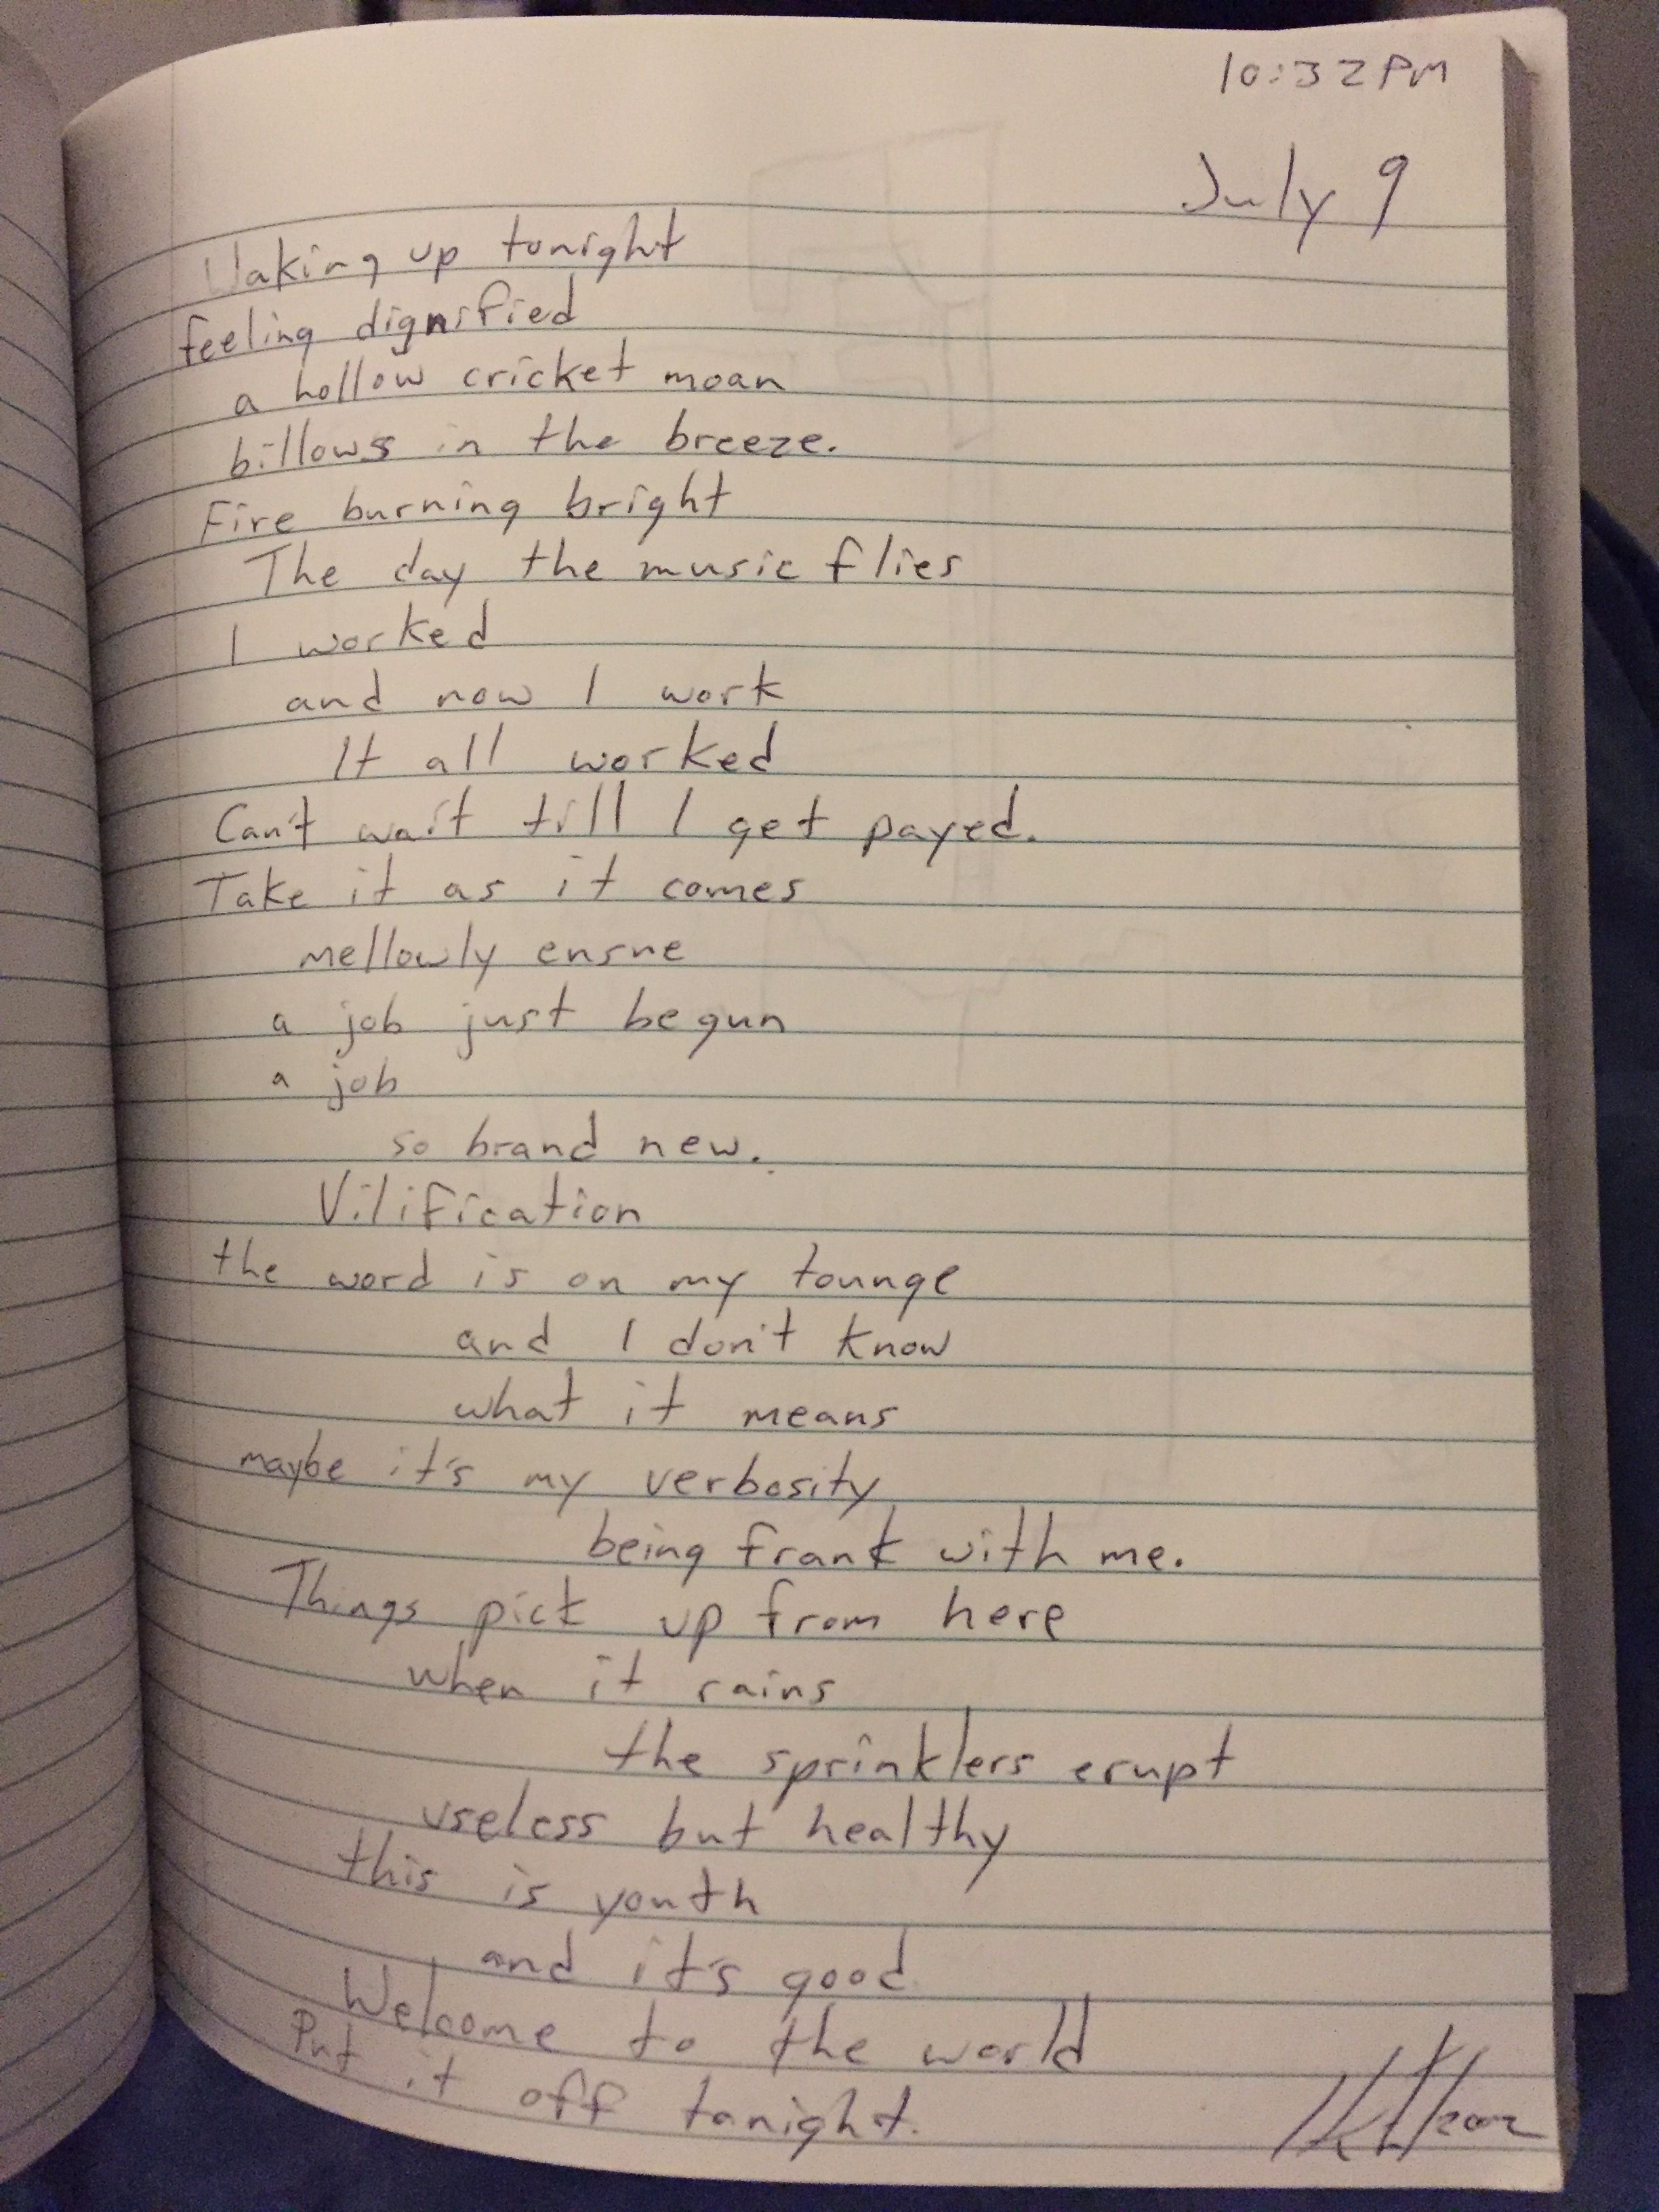 10:32PM
July 9
Waking up tonight
feeling dignified
a hollow cricket moan
billows in the breeze.
Fire burning bright
The day the music flies
I worked
and now I work
It all worked
Can't wait till I get payed.
Take it as it comes
mellowly ensue
a job just begun
a job
so brand new.
Vilification
the word is on my tounge
and I don't know
what it means
maybe it's my verbosity
being frank with me.
Things pick up from here
when it rains
the sprinklers erupt
useless but healthy
this is youth
and it's good
Welcome to the world
Put it off tonight.
2002